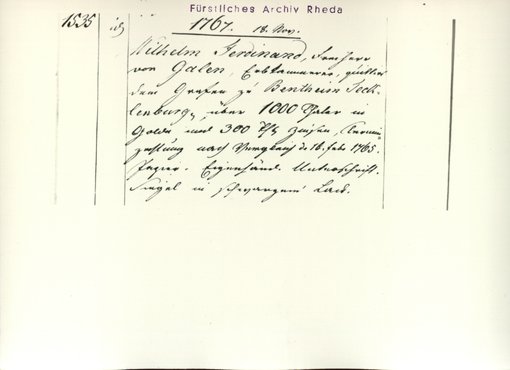 Fürstliches Archiv Rheda
1535 1767. 18. Nov.
Wilhelm Ferdinand, Freiherr
von Galen, Erbkämmerer, quittiert
dem Grafen zu Bentheim Teck-
lenburg, über 1000 Thaler in
Golde und 300 Zinsen, Termin-
zahlung nach Vergleich de 16. Febr 1765.
Papier. Eigenhänd. Unterschrift.
Siegel in schwarzem Lack.